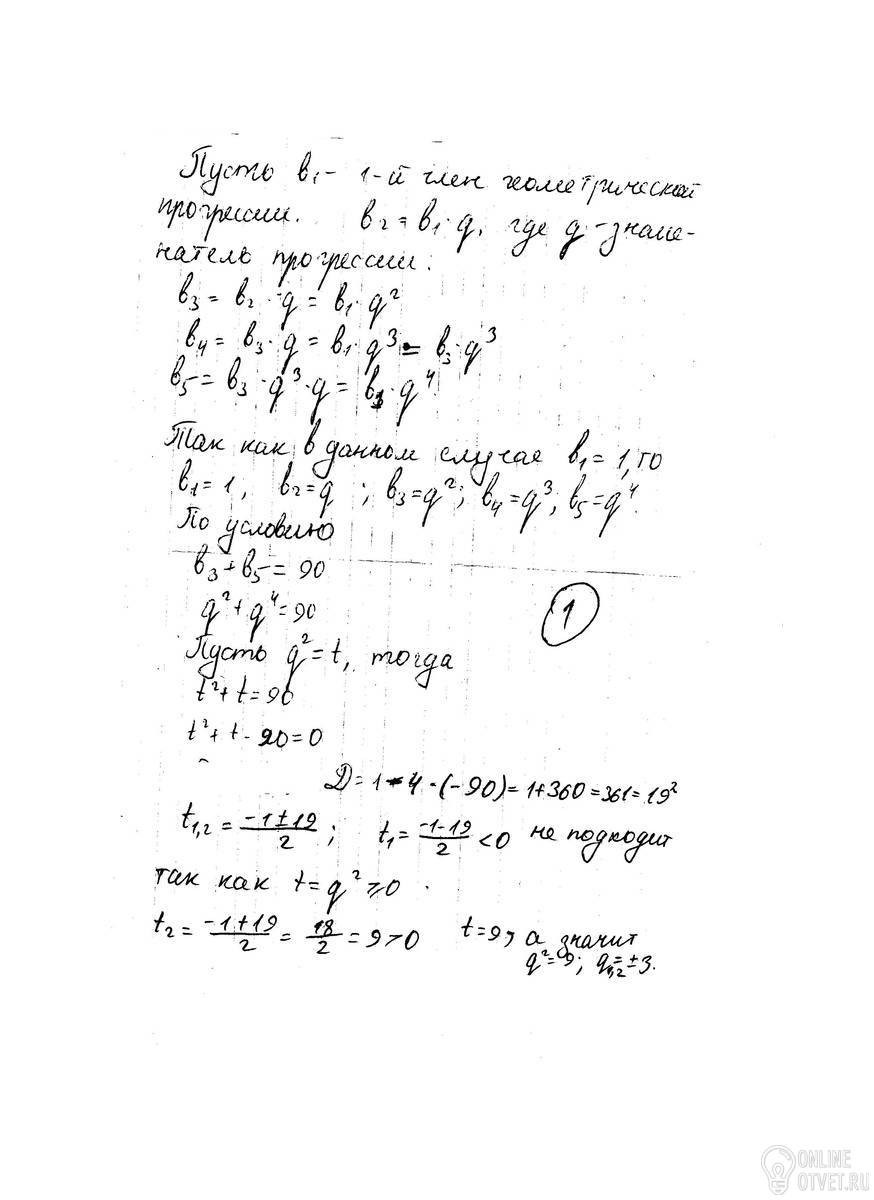 Пусть в₁ - 1-й член геометрической
прогрессии. в₂ = в₁·q, где q - знаме-
натель прогрессии.
в₃ = в₂·q = в₁·q²
в₄ = в₃·q = в₁·q³ = в₃·q³
в₅ = в₃·q³·q = в₁·q⁴
Так как в данном случае в₁ = 1, то
в₁ = 1, в₂ = q ; в₃ = q²; в₄ = q³; в₅ = q⁴.
По условию
в₃ + в₅ = 90
q² + q⁴ = 90
1
Пусть q² = t, тогда
t² + t = 90
t² + t - 90 = 0
D = 1 - 4·(-90) = 1 + 360 = 361 = 19²
t₁,₂ = (-1 ± 19)/2 ; t₁ = (-1-19)/2 < 0 не подходит
так как t = q² ≥ 0.
t₂ = (-1+19)/2 = 18/2 = 9 > 0 t = 9, а значит
q² = 9; q₁,₂ = ±3.
ONLINE
OTVET.RU